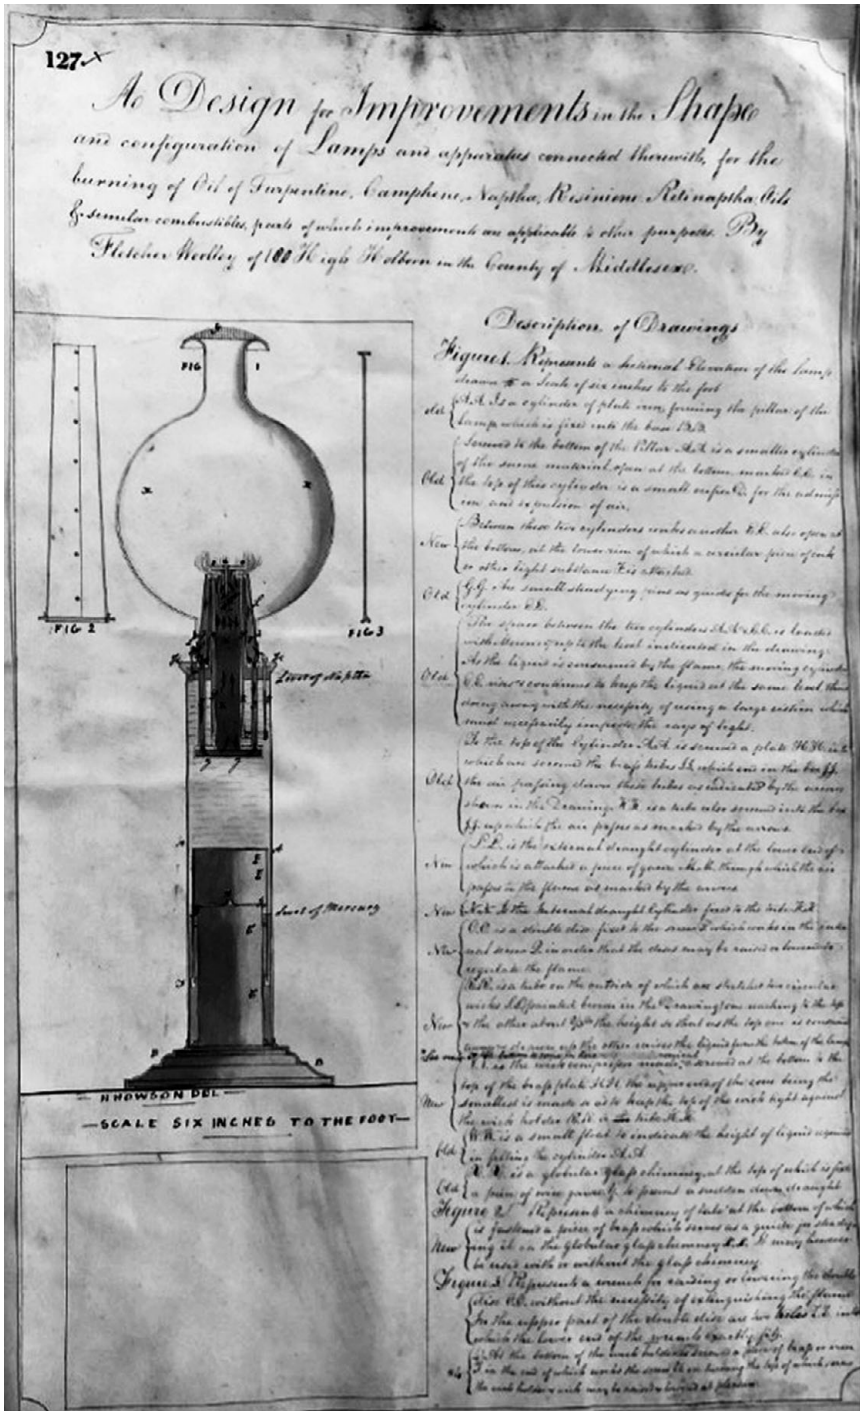 127
A Design for Improvements in the Shape
and configuration of Lamps and apparatus connected therewith, for the
burning of Oil of Turpentine, Camphene, Naptha, Resinione Retinaptha Oils
& similar combustibles, parts of which improvements are applicable to other purposes. By
Fletcher Woolley of 180 High Holborn in the County of Middlesex.
FIG 1
FIG 2
FIG 3
Level of Naptha
Level of Mercury
H HOWSON DEL
SCALE SIX INCHES TO THE FOOT
Description of Drawings
Figure 1. Represents a Sectional Elevation of the Lamp
drawn to a Scale of six inches to the foot
Old A.A. Is a cylinder of plate iron, forming the pillar of the
Lamp which is fixed into the base B.B.
Old Screwed to the bottom of the Pillar A.A. is a smaller cylinder
of the same material, open at the bottom, marked C.C. in
the top of this cylinder is a small orifice D for the admiss
ion and expulsion of air.
New Between these two cylinders works another E.E. also open at
the bottom, at the lower rim of which a circular piece of cork
or other light substance F is attached
Old G.G. are small steadying pins as guides for the moving
cylinder E.E.
Old The space between the two cylinders A.A & C.C. is loaded
with Mercury up to the level indicated in the drawing.
As the liquid is consumed by the flame, the moving cylinder
E.E. rises & continues to keep the liquid at the same level, thus
doing away with the necessity of using a large cistern which
must necessarily impede the rays of light.
Old To the top of the Cylinder A.A. is screwed a plate H.H. into
which are screwed the brass tubes I.I. which end in the box J.J.
the air passing down these tubes as indicated by the arrows
shewn in the Drawing. K.K. is a tube also screwed into the box
J.J. up which the air passes as marked by the arrows.
New L.L. is the external draught cylinder at the lower end of
which is attached a piece of gauze Mesh through which the air
passes to the flame as marked by the arrows
New is the Internal draught Cylinder fixed to the tube K.K.
New O.O. is a double disc fixed to the screw P which works in the inter
nal screw Q. in order that the discs may be raised or lowered to
regulate the flame.
New R.R. is a tube on the outside of which are stretched two circular
wicks S.S (painted brown in the Drawing) one reaching to the top
& the other about the height so that as the top one is consumed
the other raises the liquid from the bottom of the Lamp
is the wick compressor made, & screwed at the bottom to the
New top of the brass plate H.H. the upper end of the cone being the
smallest is made so as to keep the top of the wick tight against
the wick holder R.R.
Old W.W. is a small float to indicate the height of liquid required
in filling the cylinder A.A.
Old X.X. is a globular glass chimney, at the top of which is fixed
a piece of wire gauze Y. to prevent a sudden down draught
Figure 2. Represents a chimney of talc at the bottom of which
New is fastened a piece of brass which serves as a guide for steady
ing it on the globular glass chimney x.x. It may however
be used with or without the glass chimney
Figure 3 Represents a wrench for raising or lowering the double
disc O.O. without the necessity of extinguishing the flame.
In the upper part of the double disc are two holes Z.Z. into
which the lower end of the wrench exactly fits.
At the bottom of the wick holder is screwed a piece of brass or iron
in the end of which works the screw by turning the top of which
the wick holder & wick may be raised & lowered at pleasure